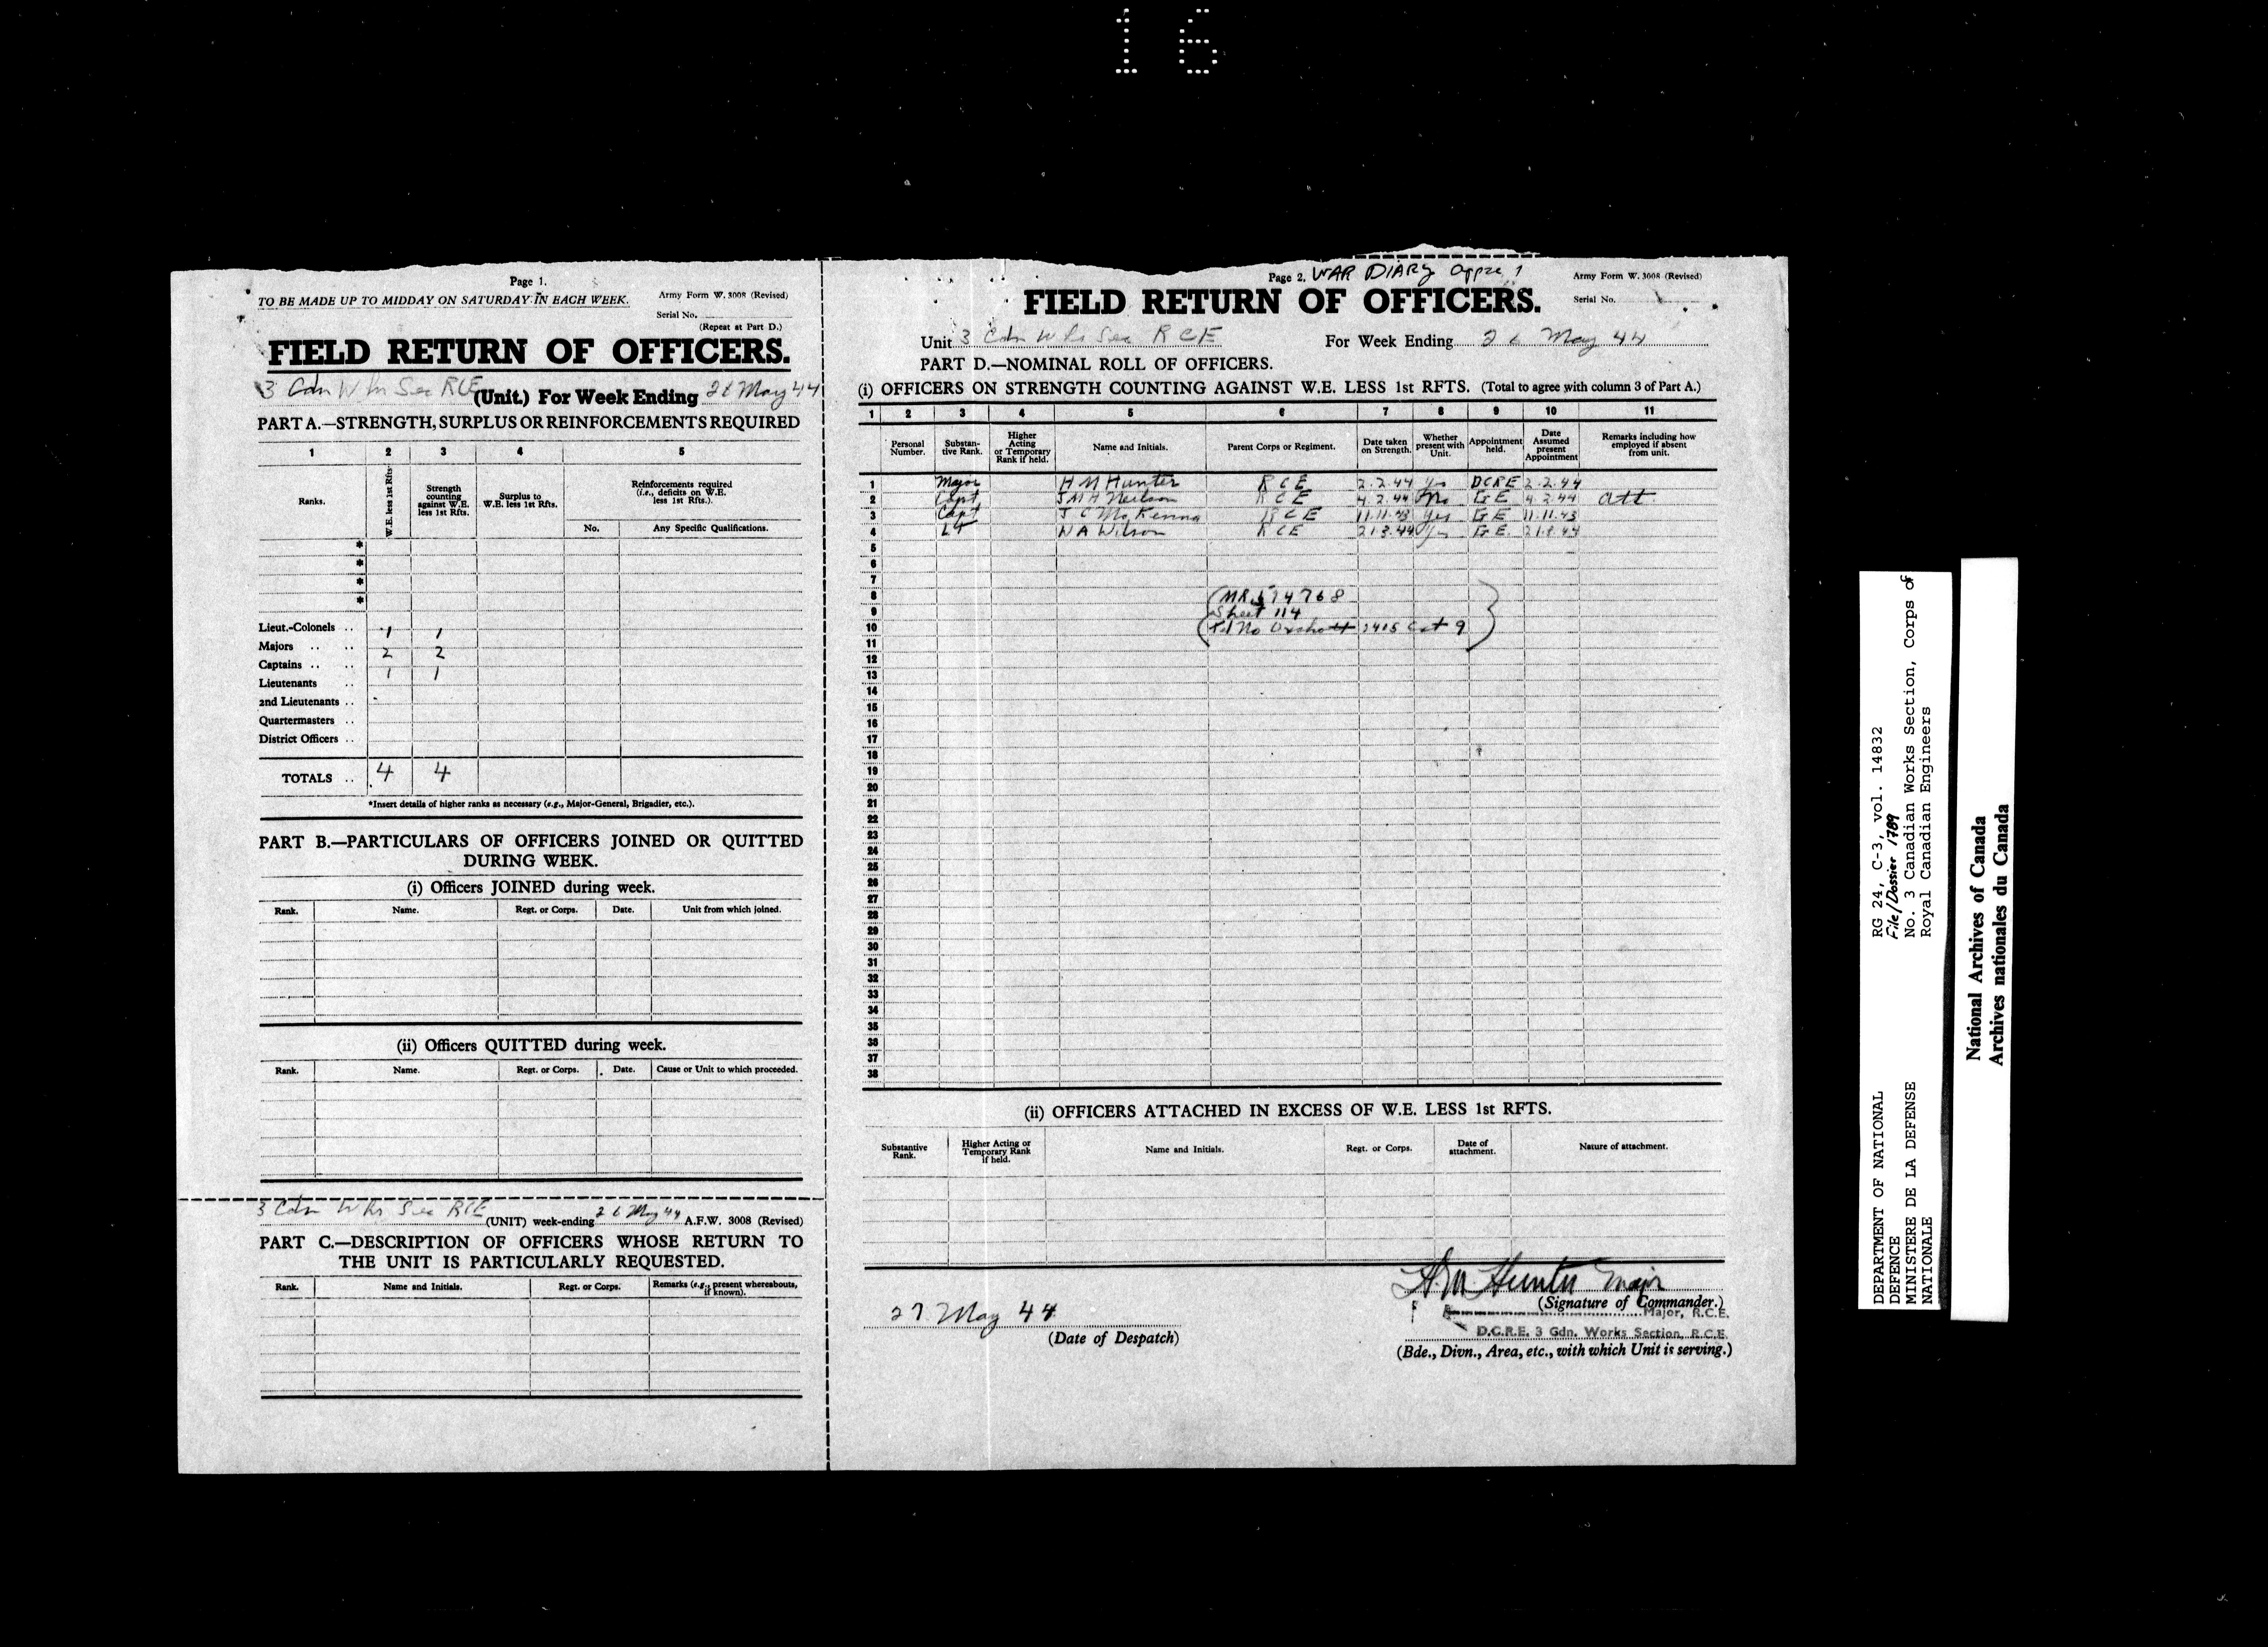 16
Page 1.
TO BE MADE UP TO MIDDAY ON SATURDAY IN EACH WEEK.
Army Form W. 3008 (Revised)
Serial No.
(Repeat at Part D.)
FIELD RETURN OF OFFICERS.
3 Cdn Wks Sec RCE (Unit.) For Week Ending 26 May 44
PART A.—STRENGTH, SURPLUS OR REINFORCEMENTS REQUIRED
1 2 3 4 5
Ranks.
W.E. less 1st Rfts.
Strength counting against W.E. less 1st Rfts.
Surplus to W.E. less 1st Rfts.
Reinforcements required (i.e., deficits on W.E. less 1st Rfts.).
No. Any Specific Qualifications.
*
*
*
*
Lieut.-Colonels .. 1 1
Majors .. .. 2 2
Captains .. .. 1 1
Lieutenants ..
2nd Lieutenants ..
Quartermasters ..
District Officers ..
TOTALS .. 4 4
*Insert details of higher ranks as necessary (e.g., Major-General, Brigadier, etc.).
PART B.—PARTICULARS OF OFFICERS JOINED OR QUITTED
DURING WEEK.
(i) Officers JOINED during week.
Rank. Name. Regt. or Corps. Date. Unit from which joined.
(ii) Officers QUITTED during week.
Rank. Name. Regt. or Corps. Date. Cause or Unit to which proceeded.
3 Cdn Wks Sec RCE (UNIT) week-ending 26 May 44 A.F.W. 3008 (Revised)
PART C.—DESCRIPTION OF OFFICERS WHOSE RETURN TO
THE UNIT IS PARTICULARLY REQUESTED.
Rank. Name and Initials. Regt. or Corps. Remarks (e.g., present whereabouts, if known).
Page 2. WAR DIARY appx 1
Army Form W. 3008 (Revised)
Serial No.
FIELD RETURN OF OFFICERS.
Unit 3 Cdn Wks Sec RCE For Week Ending 26 May 44
PART D.—NOMINAL ROLL OF OFFICERS.
(i) OFFICERS ON STRENGTH COUNTING AGAINST W.E. LESS 1st RFTS. (Total to agree with column 3 of Part A.)
1 2 3 4 5 6 7 8 9 10 11
Personal Number.
Substantive Rank.
Higher Acting or Temporary Rank if held.
Name and Initials.
Parent Corps or Regiment.
Date taken on Strength.
Whether present with Unit.
Appointment held.
Date Assumed present Appointment
Remarks including how employed if absent from unit.
1 Major H M Hunter RCE 2.2.44 Yes DCRE 2.2.44
2 Capt J M H Neilson RCE 4.2.44 No GE 4.2.44 att
3 Capt J C McKenna RCE 11.11.43 Yes GE 11.11.43
4 Lt N A Wilson RCE 21.3.44 Yes GE 21.3.44
5
6
7
8 (MR 574768
9 Sheet 114
10 Tel No Oxshott 2405 Ext 9)
11
12
13
14
15
16
17
18
19
20
21
22
23
24
25
26
27
28
29
30
31
32
33
34
35
36
37
38
(ii) OFFICERS ATTACHED IN EXCESS OF W.E. LESS 1st RFTS.
Substantive Rank. Higher Acting or Temporary Rank if held. Name and Initials. Regt. or Corps. Date of attachment. Nature of attachment.
H M Hunter Major
(Signature of Commander.)
Major, R.C.E.
27 May 44
(Date of Despatch)
D.C.R.E. 3 Cdn. Works Section, R.C.E.
(Bde., Divn., Area, etc., with which Unit is serving.)
DEPARTMENT OF NATIONAL
DEFENCE
MINISTERE DE LA DEFENSE
NATIONALE
RG 24, C-3, vol. 14832
File/Dossier 1789
No. 3 Canadian Works Section, Corps of
Royal Canadian Engineers
National Archives of Canada
Archives nationales du Canada